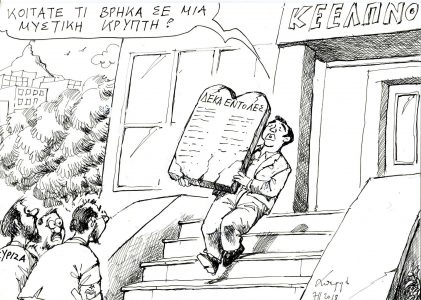 ΚΟΙΤΑΤΕ ΤΙ ΒΡΗΚΑ ΣΕ ΜΙΑ
ΜΥΣΤΙΚΗ ΚΡΥΠΤΗ?
ΚΕΕΛΠΝΟ
ΔΕΚΑ ΕΝΤΟΛΕΣ
ΣΥΡΙΖΑ